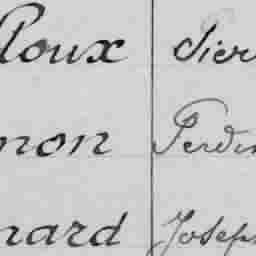 Roux Pier
mon Ferdin
nard Joseph